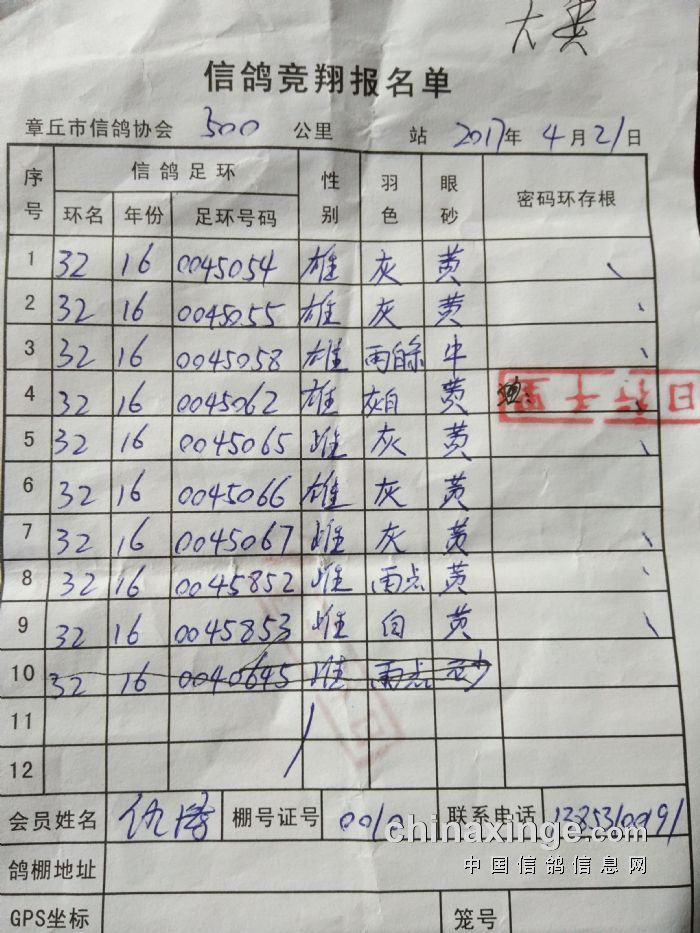 大奖
信鸽竞翔报名单
章丘市信鸽协会 300 公里 站 2017年 4月21日
序号 信鸽足环 性别 羽色 眼砂 密码环存根
环名 年份 足环号码
1 32 16 0045054 雄 灰 黄
2 32 16 0045055 雄 灰 黄
3 32 16 0045058 雄 雨白条 牛
4 32 16 0045062 雄 灰白 黄
5 32 16 0045065 雌 灰 黄
6 32 16 0045066 雄 灰 黄
7 32 16 0045067 雌 灰 黄
8 32 16 0045852 雌 雨点 黄
9 32 16 0045853 雌 白 黄
10 32 16 0040645 雌 雨点 砂
11
12
会员姓名 仇 棚号证号 0010 联系电话 13853100191
chinaxinge.com
鸽棚地址
中国信鸽信息网
GPS坐标 笼号